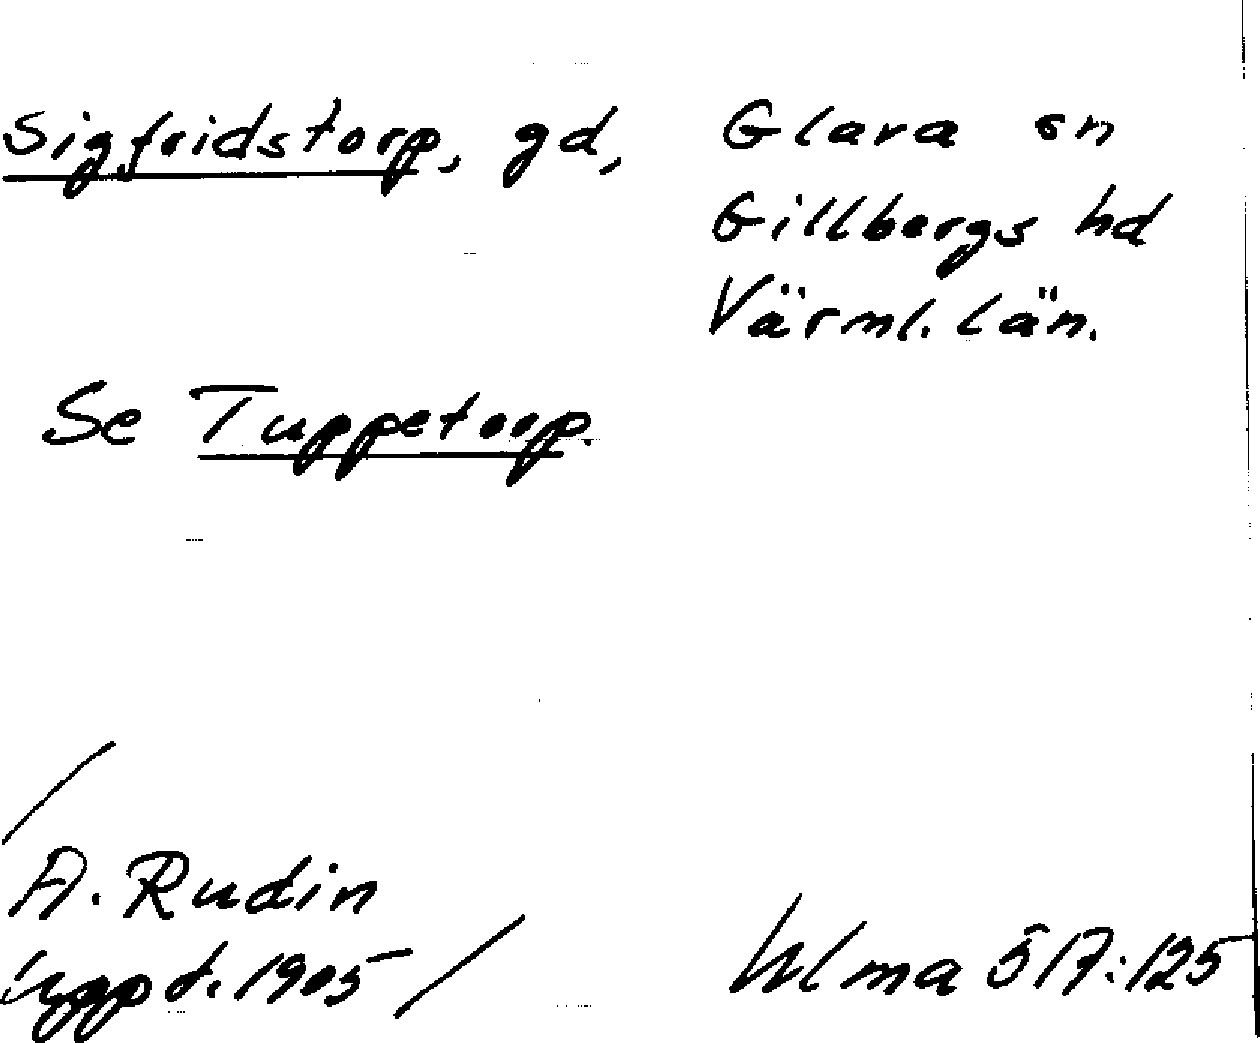 Sigfridstorp, gd, Glava sn
Gillbergs hd
Värml. län.
Se Tuppetorp.
A. Rudin
uppt. 1905
Ulma 517:125